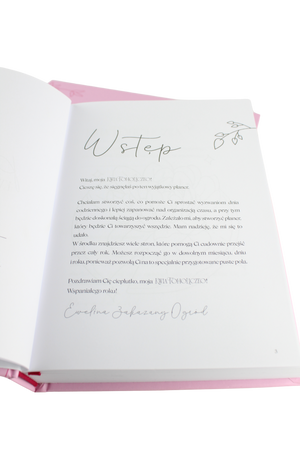 Wstęp
Witaj, moja
Cieszę się, że sięgnęłaś po ten wyjątkowy planer.
Chciałam stworzyć coś, co pomoże Ci sprostać wyzwaniom dnia
codziennego i lepiej zapanować nad organizacją czasu, a przy tym
będzie doskonałą ściągą do ogrodu. Zależało mi, aby stworzyć planer,
który będzie Ci towarzyszyć wszędzie. Mam nadzieję, że mi się to
udało.
W środku znajdziesz wiele stron, które pomogą Ci cudownie przejść
przez cały rok. Możesz rozpocząć go w dowolnym miesiącu, dniu
i roku, ponieważ pozwolą Ci na to specjalnie przygotowane puste pola.
Pozdrawiam Cię cieplutko, moja
Wspaniałego roku!
Ewelina Zakazany Ogród